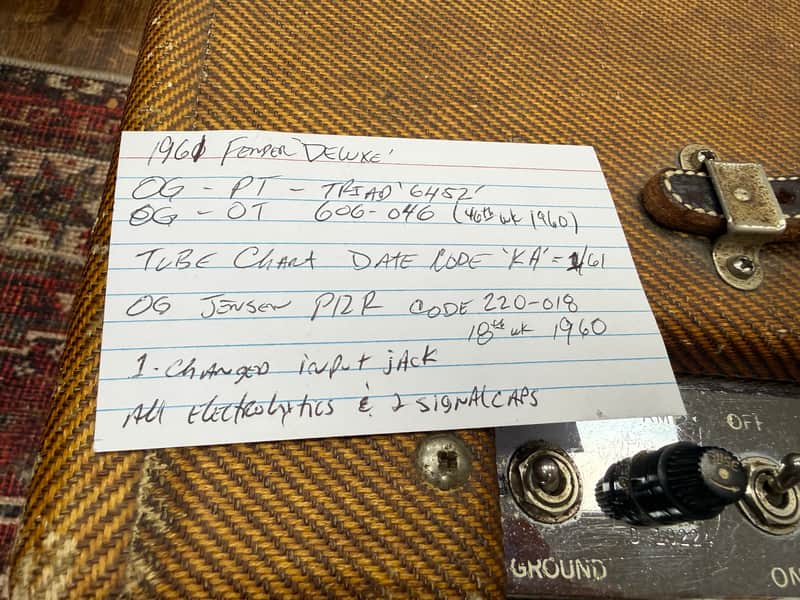 1961 FENDER 'DELUXE'
OG - PT - TRIAD '6452'
OG - OT 606-046 (46th wk 1960)
TUBE CHART DATE CODE 'KA' = 1/61
OG JENSEN P12R CODE 220-018
18th wk 1960
1. CHANGED INPUT JACK
All ELECTROLYTICS & 2 SIGNAL CAPS
AMP.
OFF
GROUND
ON